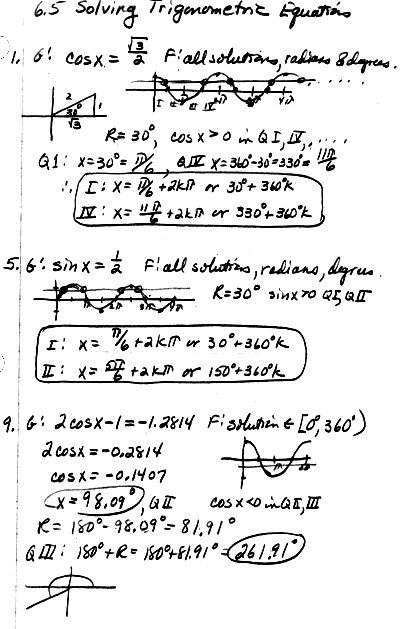 6.5 Solving Trigonometric Equations
1. G: cosx = √3/2 F: all solutions, radians & degrees.
I II III IV
2 1 30° √3
R = 30°, cosx > 0 in QI, IV, .....
Q1: x = 30° = π/6, QIV x = 360°-30° = 330° = 11π/6
∴ I: x = π/6 + 2kπ or 30° + 360°k
IV: x = 11π/6 + 2kπ or 330° + 360°k
5. G: sinx = 1/2 F: all solutions, radians, degrees.
R = 30° sinx > 0 QI, QII
I: x = π/6 + 2kπ or 30 + 360°k
II: x = 5π/6 + 2kπ or 150° + 360°k
9. G: 2cosx - 1 = -1.2814 F: solution ∈ [0°, 360°)
2cosx = -0.2814
cosx = -0.1407
x = 98.09°, QII cosx < 0 in QII, III
R = 180° - 98.09° = 81.91°
QIII: 180° + R = 180° + 81.91° = 261.91°